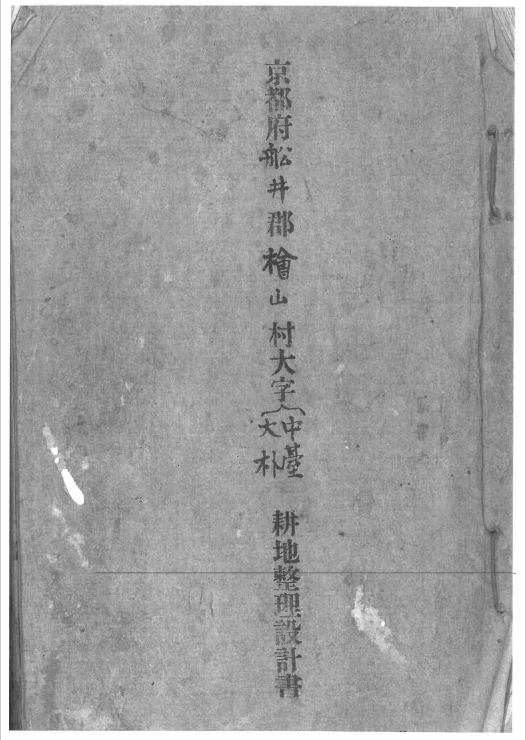 京都府船井郡檜山村大字
中臺
大朴
耕地整理設計書